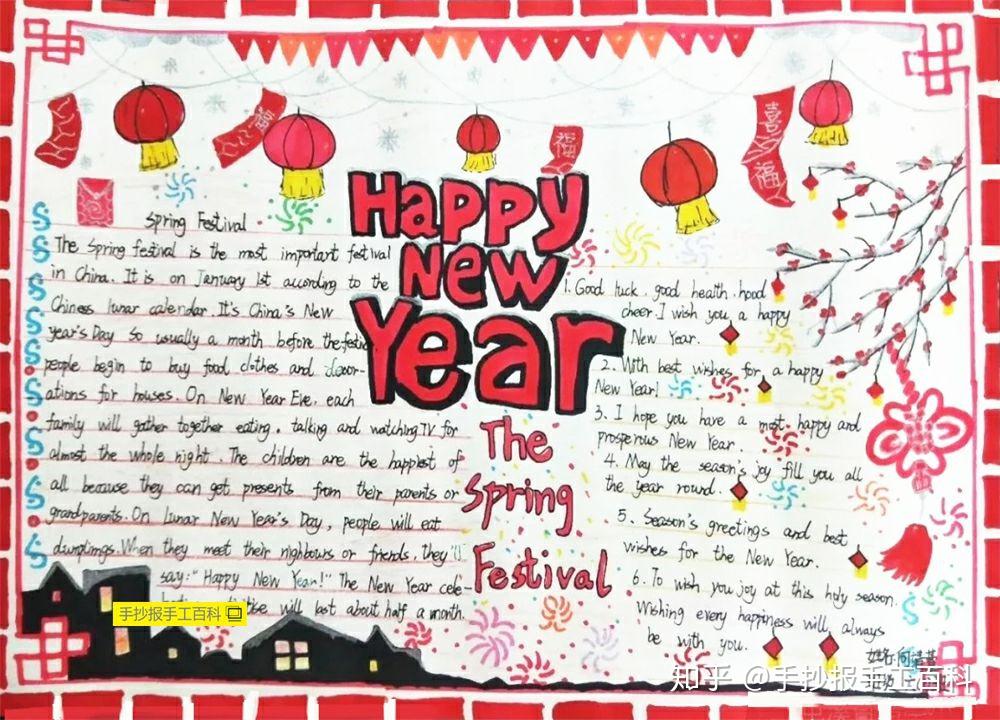 Happy
New
Year
The
Spring
Festival
福
喜
福
Spring Festival
The Spring festival is the most important festival
in China. It is on January 1st according to the
Chiness lunar calendar. It's China's New
year's Day. So usually a month before the festival
people begin to buy food clothes and decor-
ations for houses. On New Year Eve, each
family will gather together eating, talking and watching TV for
almost the whole night. The children are the happiest of
all because they can get presents from their parents or
grandparents. On Lunar New Year's Day, people will eat
dumplings. When they meet their nighbours or friends, they'll
say: "Happy New Year!" The New Year cele-
will last about half a month.
1. Good luck, good health, hood
cheer. I wish you a happy
New Year.
2. With best wishes for a happy
New Year!
3. I hope you have a most happy and
prosperous New Year.
4. May the season's joy fill you all
the year round.
5. Season's greetings and best
wishes for the New Year.
6. To wish you joy at this holy season.
Wishing every happiness will always
be with you.
手抄报手工百科
姓名:何
知乎 @手抄报手工百科